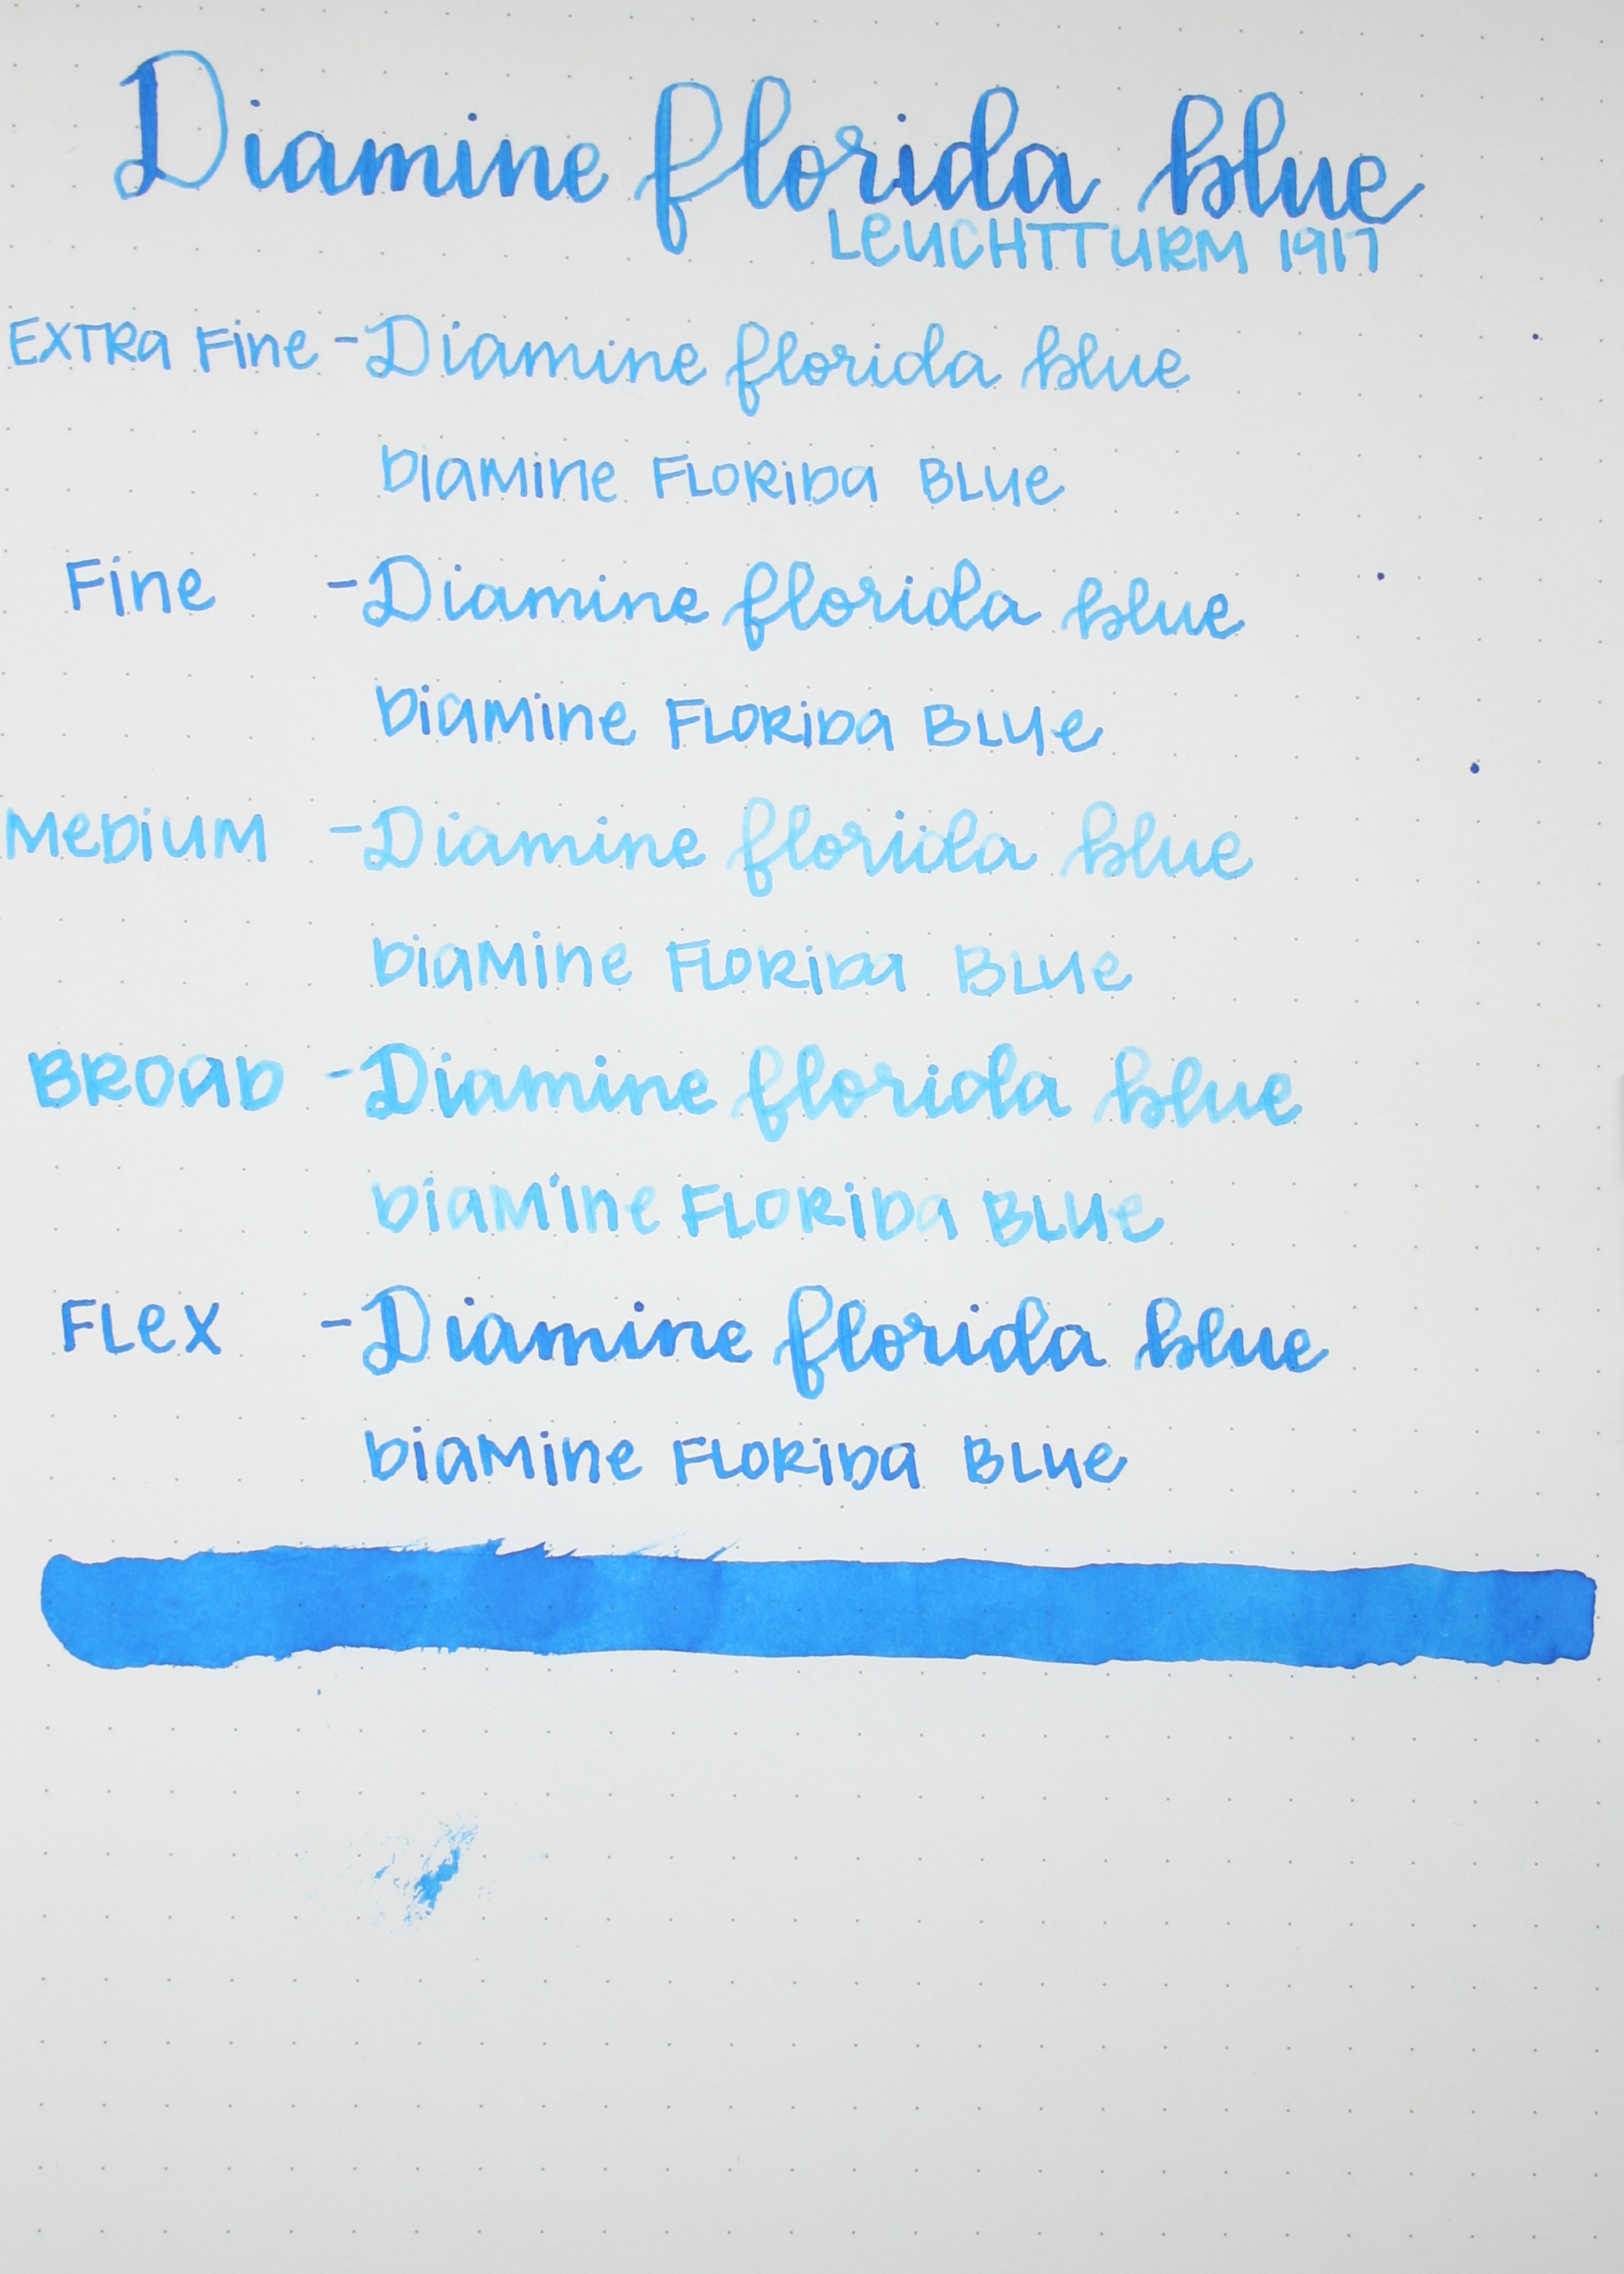 Diamine florida blue
LEUCHTTURM 1917
EXTRA Fine - Diamine florida blue
DIAMine FLORiDa BLUe
Fine - Diamine florida blue
DiaMine FLORiDa BLUe
MeDiUM - Diamine florida blue
DiaMine FLORiDa BLUe
BROaD - Diamine florida blue
DiaMine FLORiDa BLUe
FLeX - Diamine florida blue
DiaMine FLORiDa BLUe